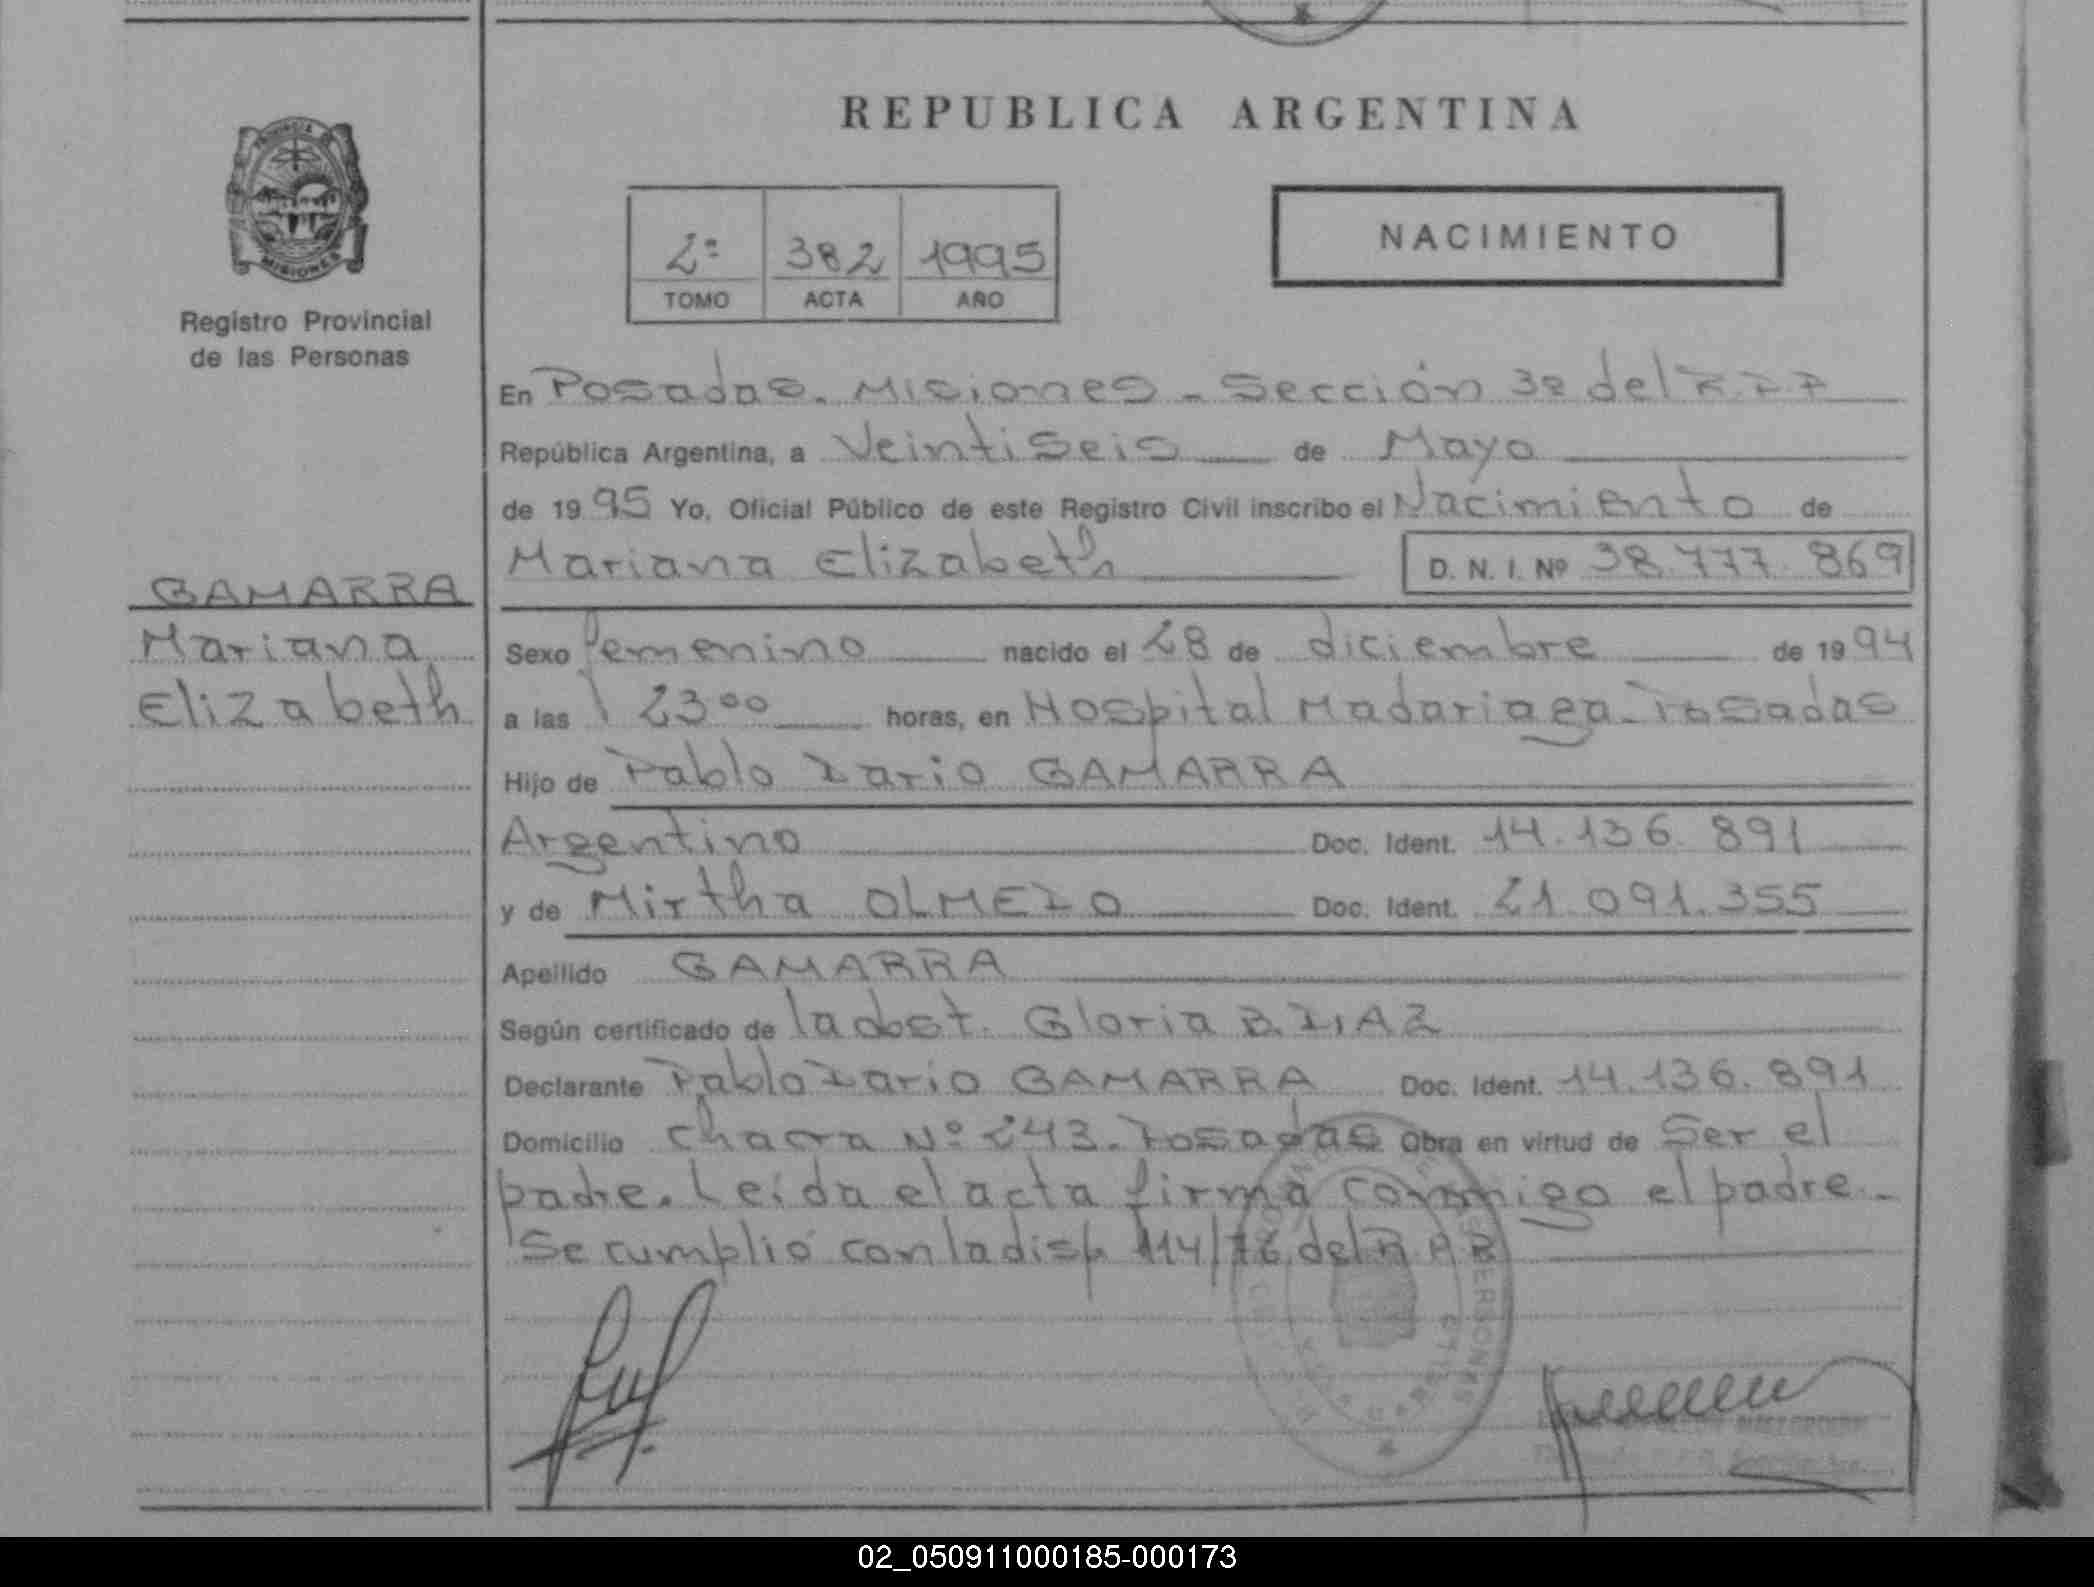 REPUBLICA ARGENTINA
PROVINCIA
MISIONES
Registro Provincial
de las Personas
2º 382 1995
TOMO ACTA AÑO
NACIMIENTO
En Posadas. Misiones - Sección 3ª del R.P.P
República Argentina, a Veintiseis de Mayo
de 1995 Yo, Oficial Público de este Registro Civil inscribo el Nacimiento de
Mariana Elizabeth D. N. I. Nº 38.777.869
GAMARRA
Mariana
Elizabeth
Sexo femenino nacido el 28 de diciembre de 1994
a las 23ºº horas, en Hospital Madariaga - Posadas
Hijo de Pablo Dario GAMARRA
Argentino Doc. Ident. 14.136.891
y de Mirtha OLMEDO Doc. Ident. 21.091.355
Apellido GAMARRA
Según certificado de la obst. Gloria B. DIAZ
Declarante Pablo Dario GAMARRA Doc. Ident. 14.136.891
Domicilio chacra Nº 243. Posadas Obra en virtud de Ser el
padre. Leida el acta firma conmigo el padre.-
Se cumplió con la disp 114/76 del R.P.P
PERSONAS
02_050911000185-000173